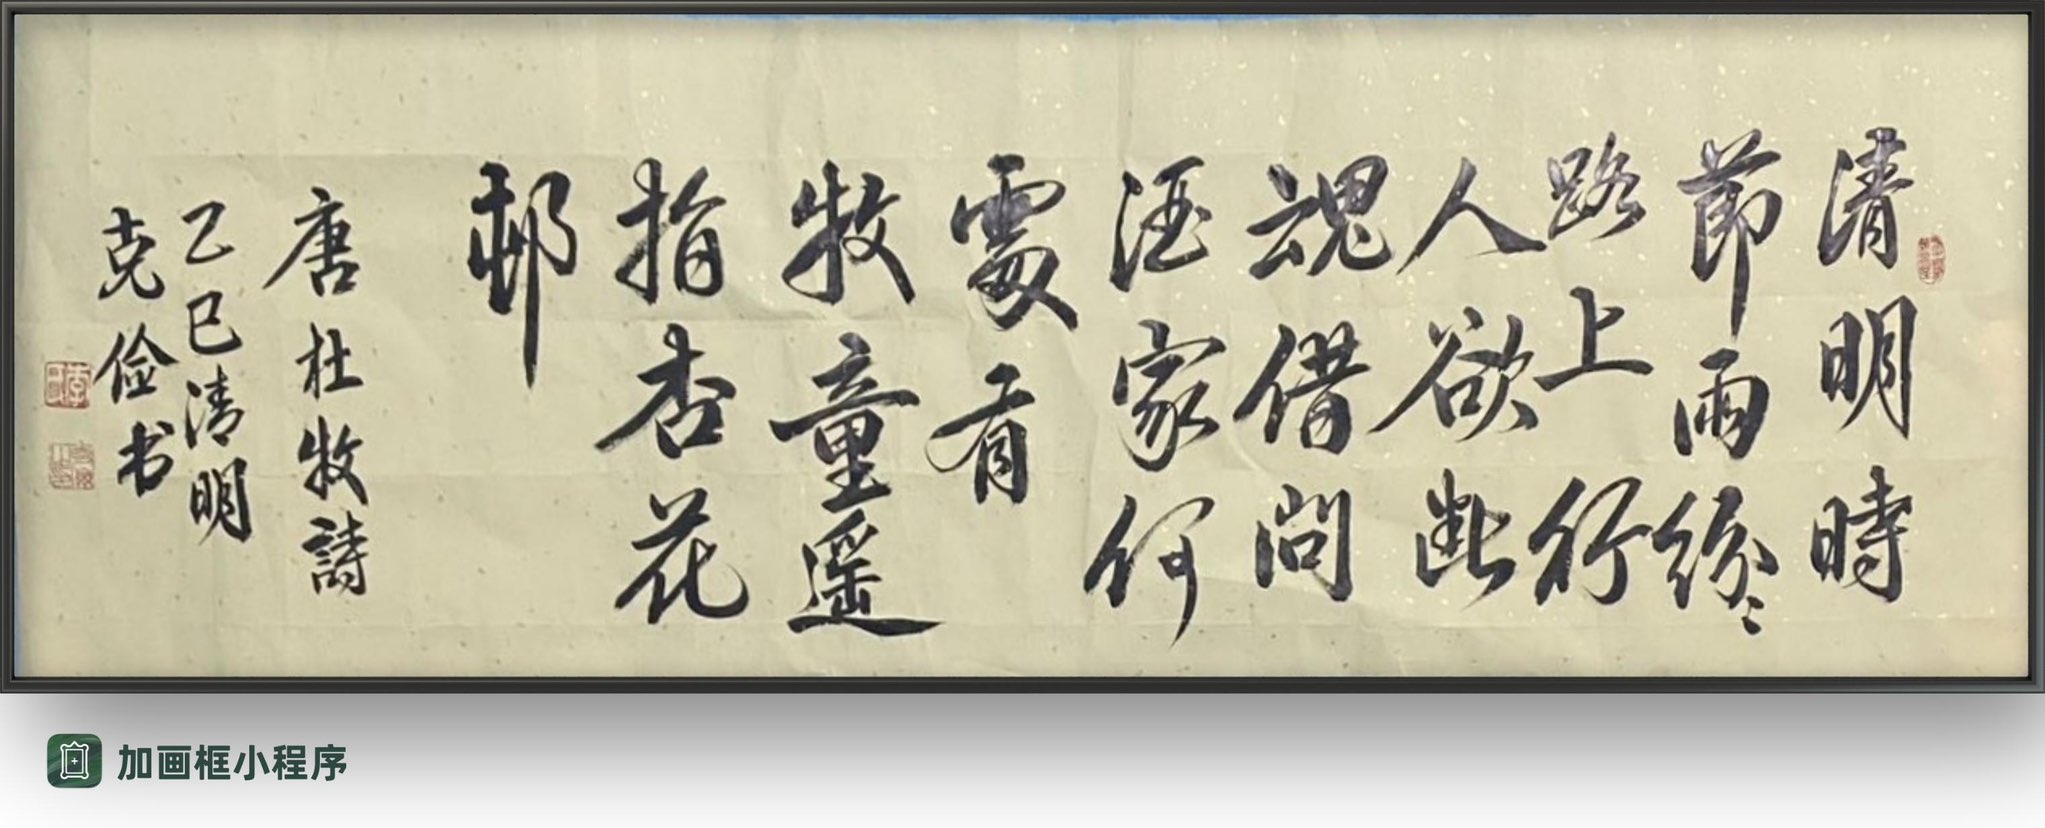 清明時
節雨紛〻
路上行
人欲斷
魂借問
酒家何
處有
牧童遥
指杏花
邨
唐杜牧詩
乙巳清明
克俭书
加画框小程序